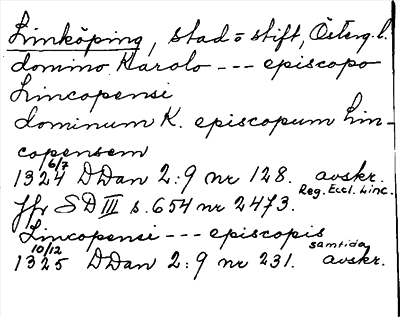 Linköping, stad o stift, Österg. l.
domino Karolo --- episcopo
Lincopensi
dominum K. episcopum Lin-
copensem
6/7
1324 DDan 2:9 nr 128. avskr.
Reg. Eccl. Linc.
Jfr SD III s. 654 nr 2473.
Lincopensi --- episcopis
10/12 samtida
1325 DDan 2:9 nr 231. avskr.